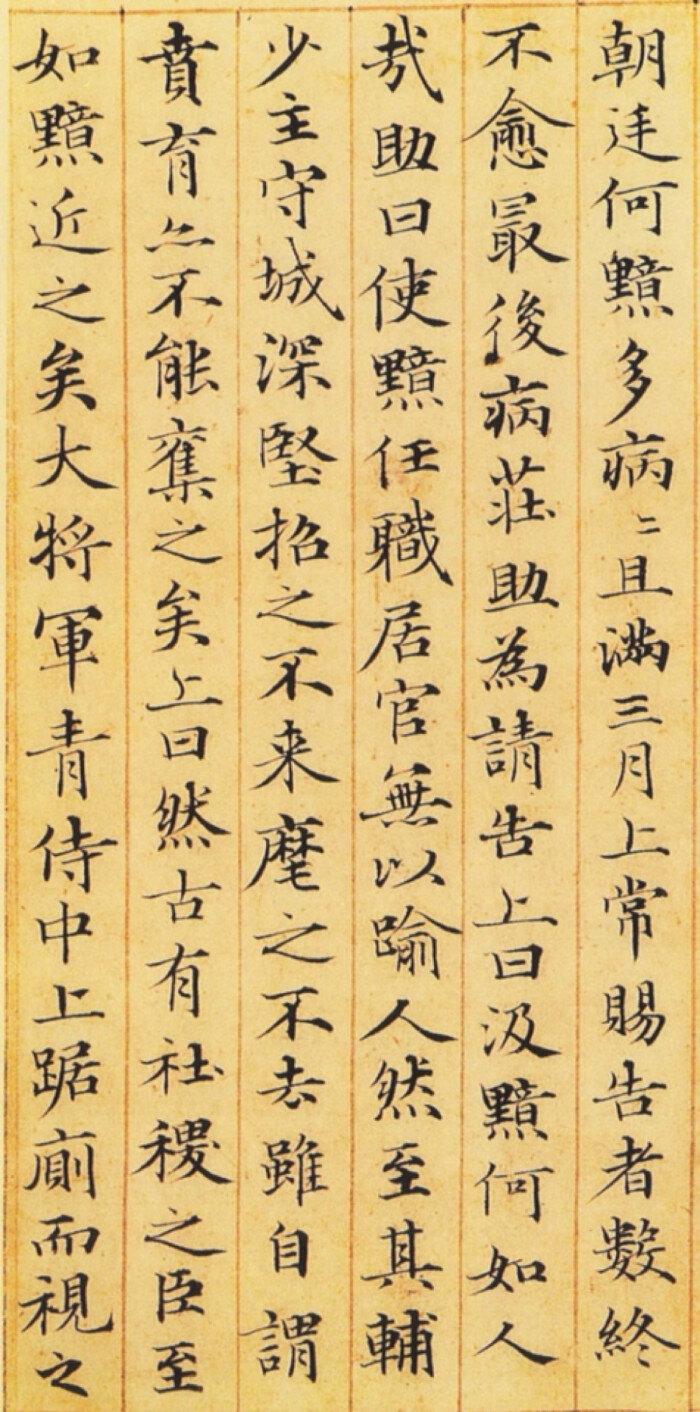 朝廷何黯多病〻且滿三月上常賜告者數終
不愈最後病莊助為請告上曰汲黯何如人
㢤助曰使黯任職居官無以踰人然至其輔
少主守城深堅招之不来麾之不去雖自謂
賁育亦不能奪之矣上曰然古有社稷之臣至
如黯近之矣大將軍青侍中上踞廁而視之